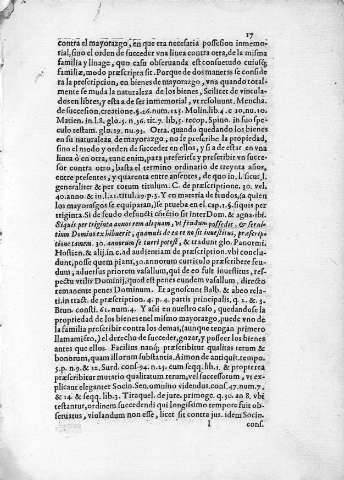 17
contra el mayorazgo, en que era necesaria possesion inmemo-
rial, sino el orden de succeder vna linea contra otra, de la misma
familia y linage, quo casu obseruanda est consuetudo cuiusq;
familiæ, modo præscripta sit. Porque de dos maneras se conside
ra la prescripcion, en bienes de mayorazgo, vna quando total-
mente se muda la naturaleza de los bienes, Scilicet de vincula-
dos en libres, y esta a de ser inmemorial, vt resoluunt, Mencha.
de succession. creatione. §. 26. num. 125. Molin. lib. 4. c. 10. nu. 10.
Matien. in l. 8. glo. 5. n. 36. tit. 7. lib. 5. recop. Spino. in suo spe-
culo testam. glo. 29. nu. 93. Otra quando quedando los bienes
en su naturaleza de mayorazgo, no se prescribe la propiedad,
sino el modo y orden de succeder en ellos, y si a de estar en vna
linea ò en otra, tunc enim, para preferirse y prescribir vn succe-
sor contra otro, basta el termino ordinario de treynta años,
entre presentes, y quarenta entre ausentes, de quo in l. sicut, l.
generaliter & per totum titulum. C. de præscriptione. 30. vel.
40. anno. & in l. 21. titul. 29. p. 3. Y en materia de feudos, (a quien
los mayorasgos se equiparan, se prueua en el cap. 1. §. si quis per
triginta. Si de feudo defuncti côtêtio sit Inter Dom. & agna. ibi:
Si quis per triginta annos rem aliquam, vt feudum possedit, & serui-
tium Domino exhibuerit, quamuis de ea re no sit inuestitus, præscrip-
tione tamen. 30. annorum se tueri potest, & tradunt glo. Panormi.
Hostien. & alij. in c. ad audientiam de præscription. vbi conclu-
dunt, posse quem p 30. annorum curriculo præscribere feu-
dum, aduersus priorem vasallum, qui de eo fuit inuestitus, res-
pectu vtilis Dominij, quod est penes eundem vasallum, directo
remanente penes Dominum. Et agnoscunt Balb. & abeo rela-
ti. in tract. de præscription. 4. p. 4. partis principalis. q. 2. & 3.
Brun. consi. 61. num. 4. Y assi en nuestro caso, quedandose la
propiedad de los bienes en el mismo mayorazgo, puede vno de
la familia prescribir contra los demas, (aunque tengan primero
llamamiento,) el derecho de succeder, gozar, y posseer los bienes
antes que ellos. Facilius nanq; præscribitur qualitas rerum &
bonorum, quam illorum substantia. Aimon de antiquit. tempo.
3. p. n. 9. & 12. Surd. cons. 94. n. 15. cum seqq. lib. 1. & propterea
præscribitur mutatio qualitatum rerum, vel successorum, vt ex-
plicant eleganter Socin. Sen. omnino videndus cons. 47. num. 7.
& 14. & seqq. lib. 3. Tiraquel. de iure. primoge. q. 30. an 8. vbi
testantur, ordinem succedendi qui longissimo tempore fuit ob-
seruatus, violandum non esse, licet sit contra jus. idem Socin.
I cons.